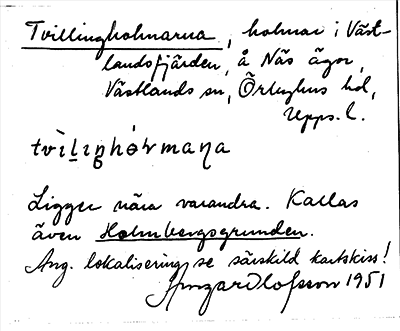 Tvillingholmarna, holmar i Väst-
landsfjärden, å Näs ägor,
Västlands sn, Örbyhus hd,
Upps. l.
Ligger nära varandra. Kallas
även Holmbergsgrunden.
Ang. lokalisering se särskild kartskiss!
Olofsson 1951